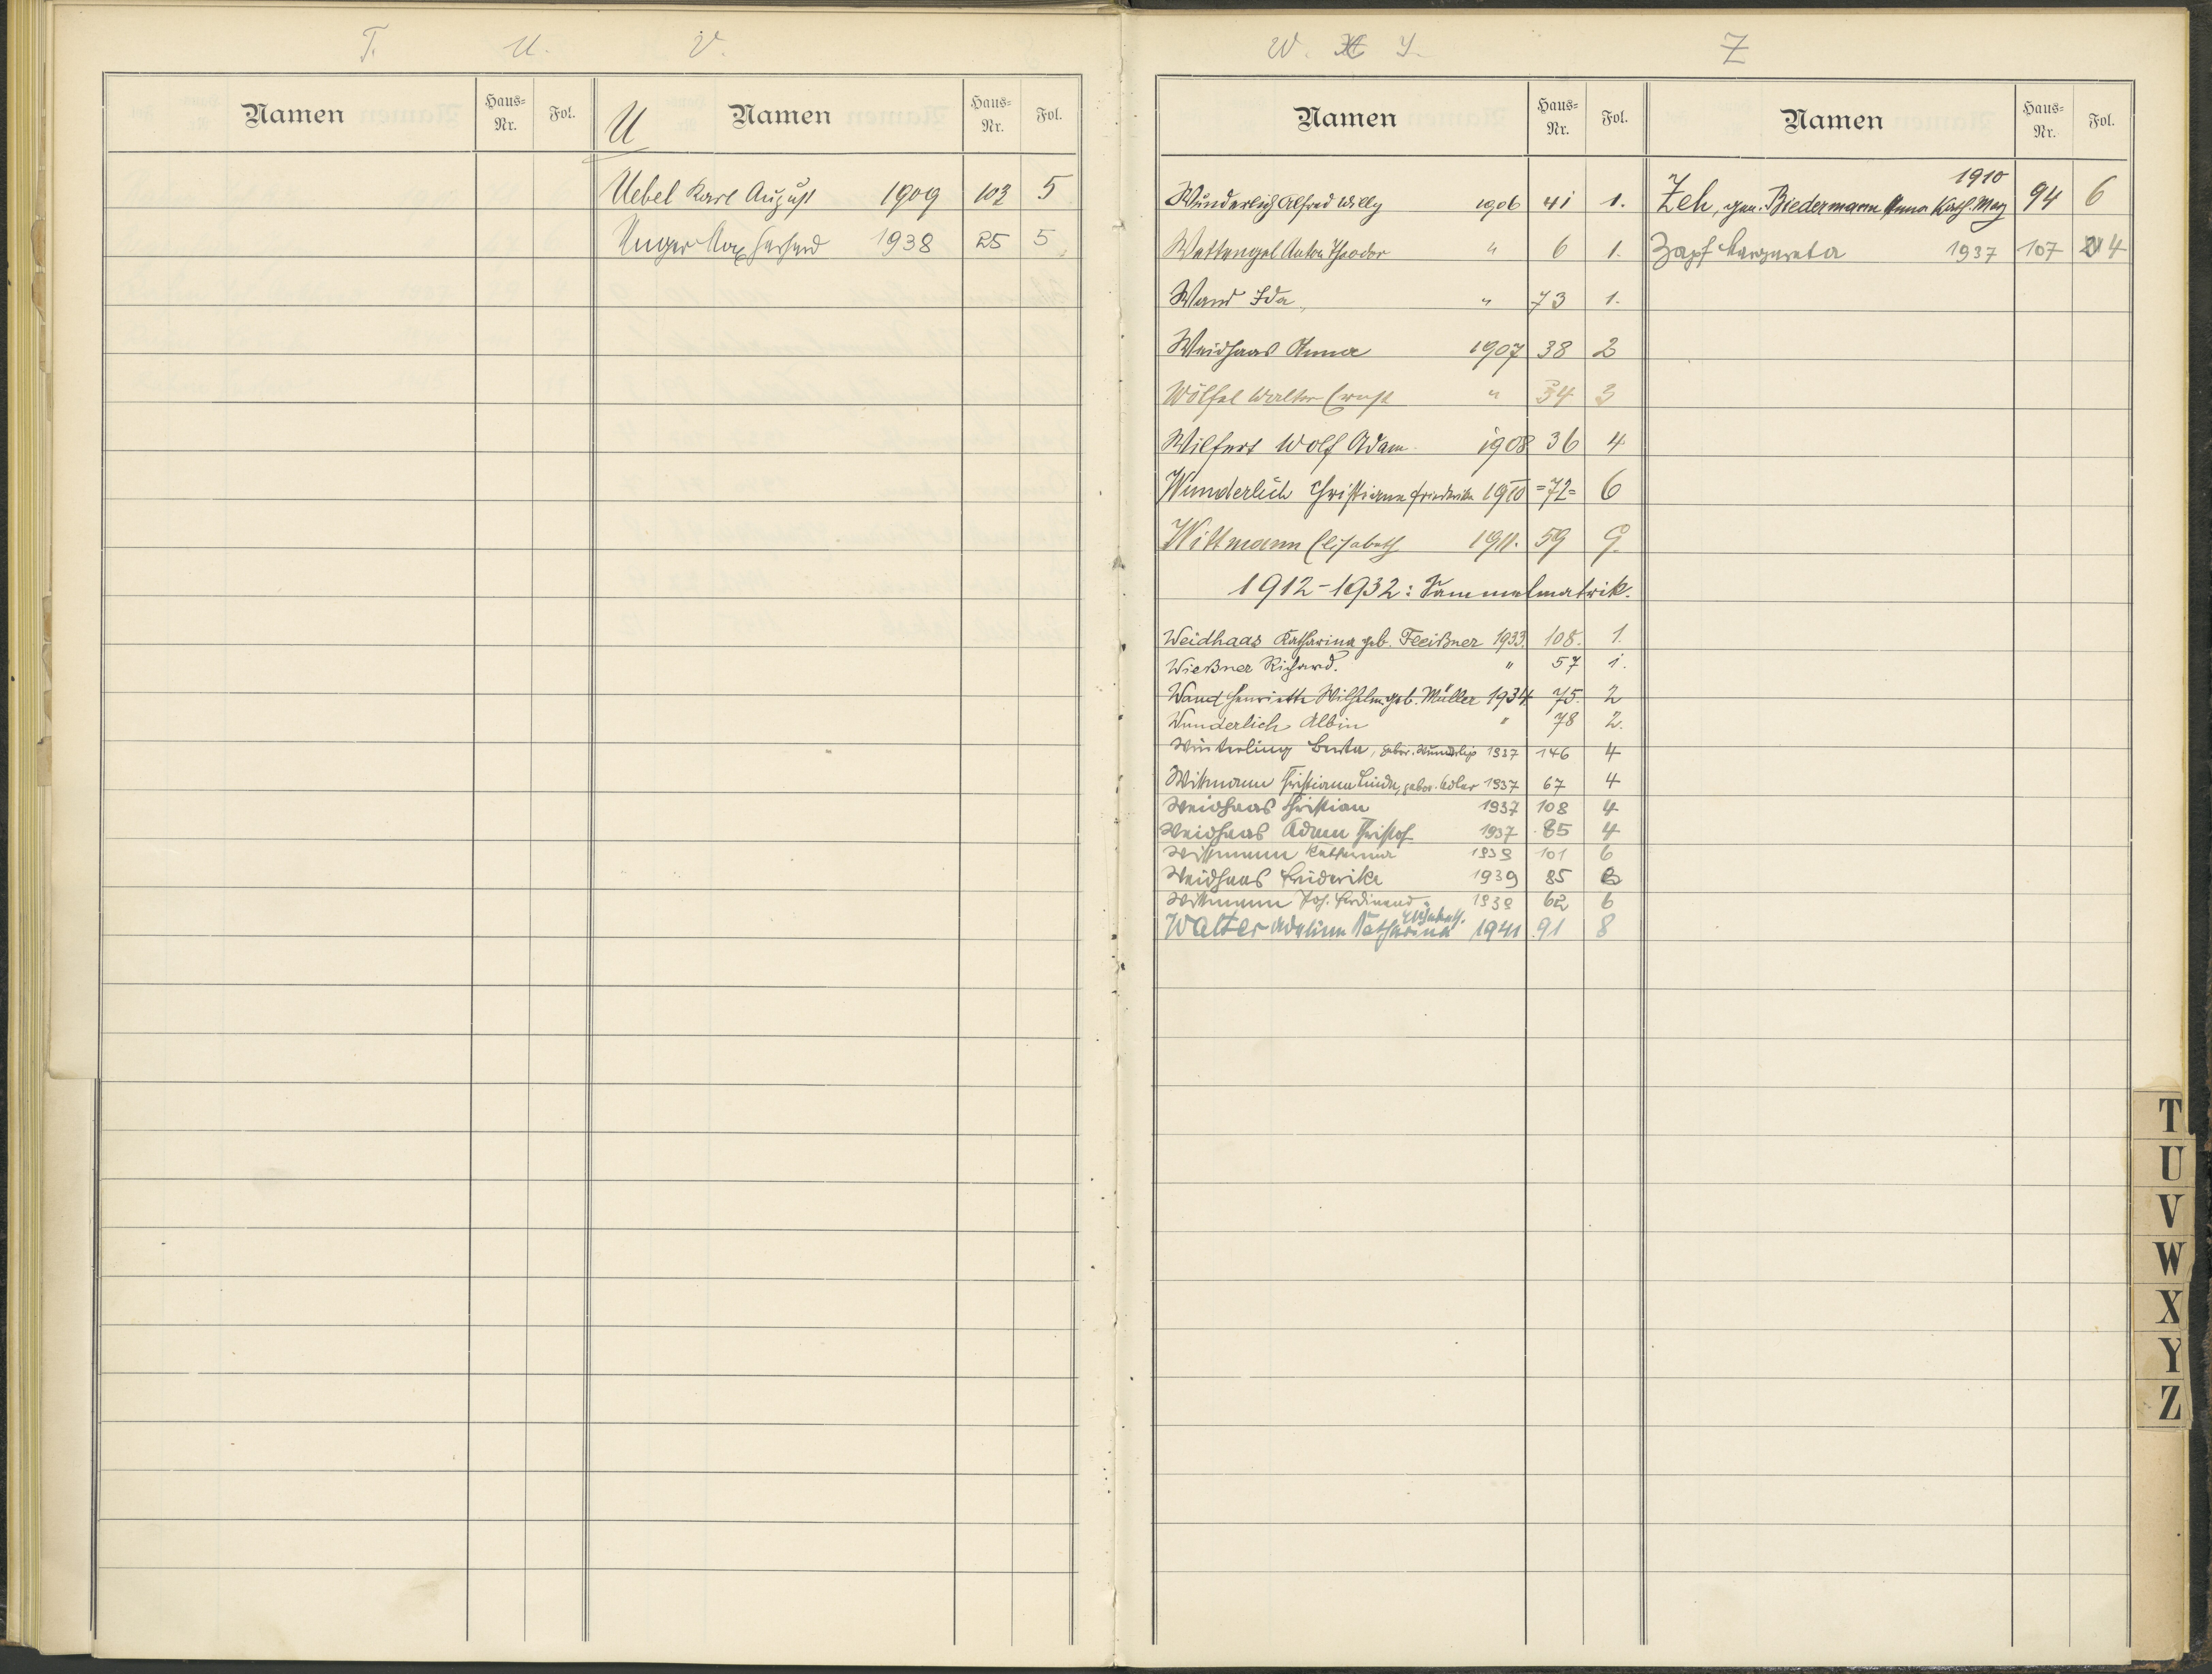 T. U. V.
Namen Haus-Nr. Fol. U Namen Haus-Nr. Fol.
Uebel Karl August 1909 103 5
Unger Max Gerhard 1938 25 5
W. X Y. Z
Namen Haus-Nr. Fol. Namen Haus-Nr. Fol.
Wunderlich Alfred Willy 1906 41 1.
Wettengel Anton Theodor " 6 1.
Wand Ida " 73 1.
Weidhaas Anna 1907 38 2
Wölfel Walter Ernst " 34 3
Wilfert Wolf Adam 1908 36 4
Wunderlich Christiane Friederike 1910 =72= 6
Wittmann Elisabeth 1911. 59 9.
1912-1932: Sammelmatrik.
Weidhaas Katharina geb. Fleißner 1933. 108. 1.
Wießner Richard. " 57 1.
Wand Henriette Wilhelm. geb. Müller 1934 75. 2
Wunderlich Albin " 78 2.
Winterling Berta, gebor. Wunderlich 1937 146 4
Wittmann Christiane Linda, gebor. Adler 1937 67 4
Weidhaas Christian 1937 108 4
Weidhaas Adam Christof 1937 85 4
Wittmann Katharina 1939 101 6
Weidhaas Friederike 1939 85 6
Wittmann Joh. Ferdinand 1939 62 6
Walter Katharina Elisabeth. 1941 91 8
Zeh, gen. Biedermann Anna Kath. Marg 1910 94 6
Zapf Margareta 1937 107 4
T
U
V
W
X
Y
Z